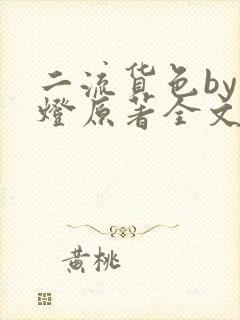 二流货色by
燈原著全文
黄桃